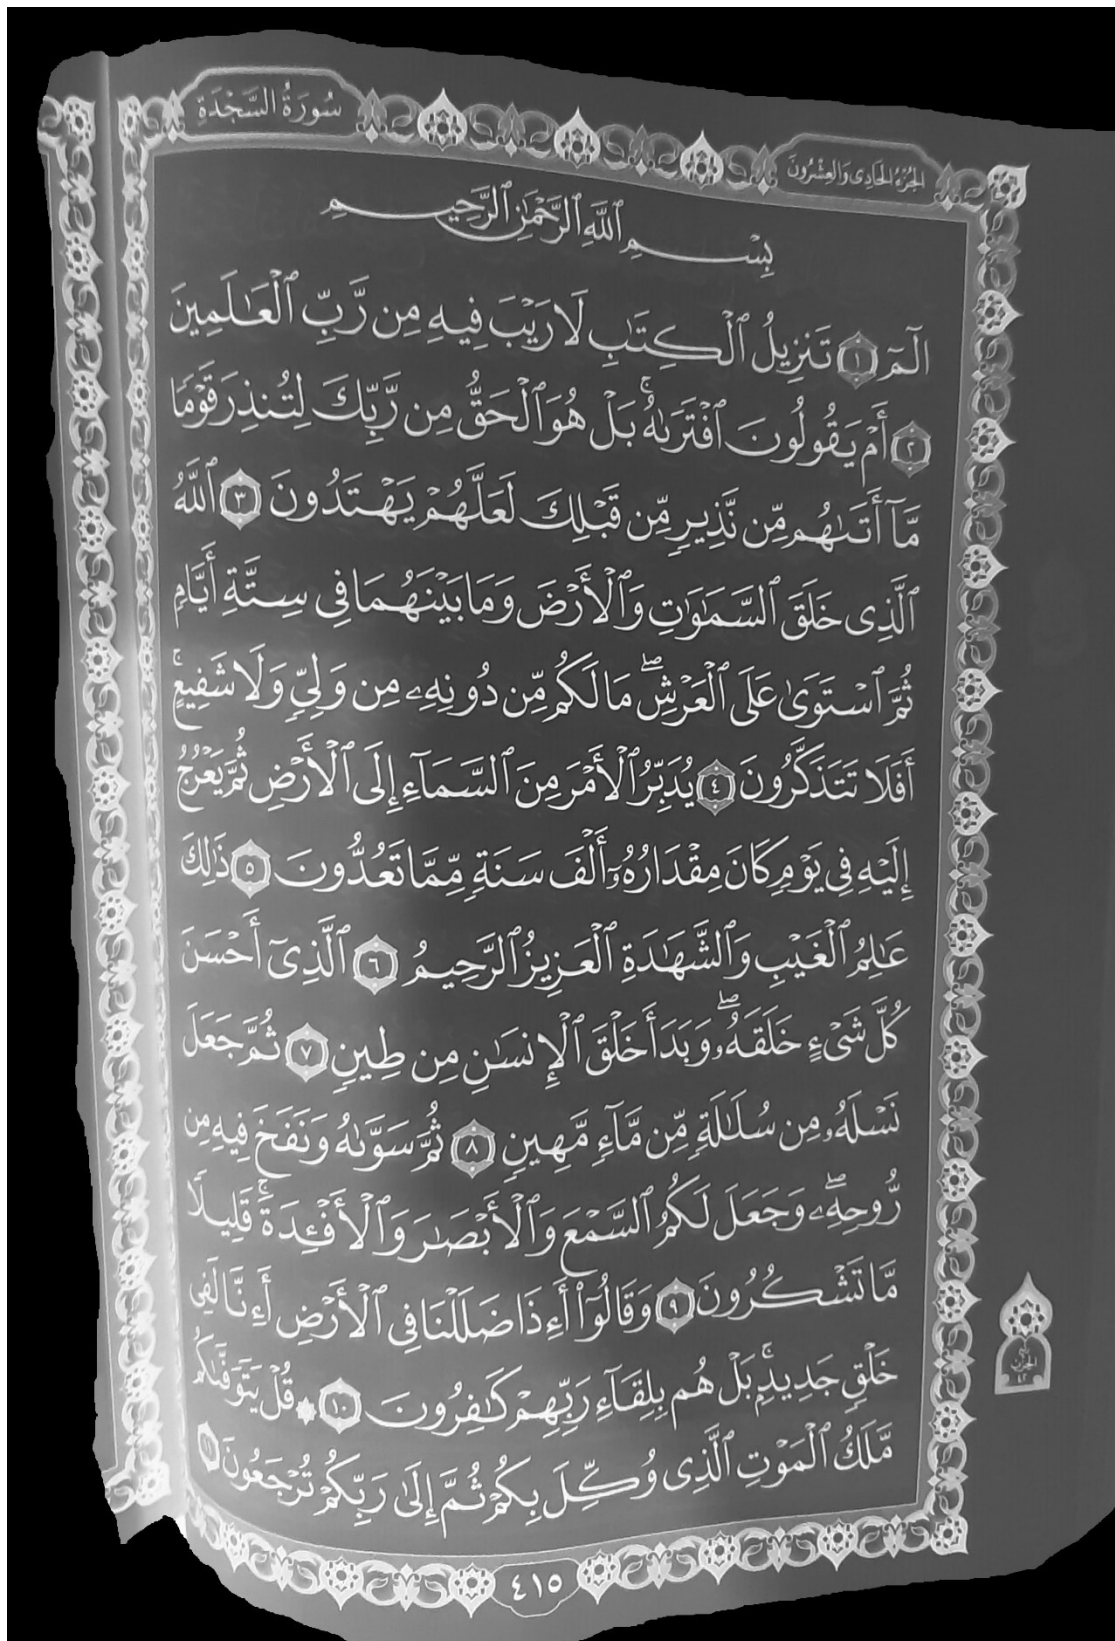 الجزء الحادي والعشرون
سُورَةُ السَّجْدَةِ
بِسْمِ ٱللَّهِ ٱلرَّحْمَٰنِ ٱلرَّحِيمِ
الٓمٓ ١ تَنزِيلُ ٱلْكِتَٰبِ لَا رَيْبَ فِيهِ مِن رَّبِّ ٱلْعَٰلَمِينَ
٢ أَمْ يَقُولُونَ ٱفْتَرَىٰهُۚ بَلْ هُوَ ٱلْحَقُّ مِن رَّبِّكَ لِتُنذِرَ قَوْمًا
مَّآ أَتَىٰهُم مِّن نَّذِيرٍ مِّن قَبْلِكَ لَعَلَّهُمْ يَهْتَدُونَ ٣ ٱللَّهُ
ٱلَّذِى خَلَقَ ٱلسَّمَٰوَٰتِ وَٱلْأَرْضَ وَمَا بَيْنَهُمَا فِى سِتَّةِ أَيَّامٍ
ثُمَّ ٱسْتَوَىٰ عَلَى ٱلْعَرْشِۖ مَا لَكُم مِّن دُونِهِۦ مِن وَلِىٍّ وَلَا شَفِيعٍۚ
أَفَلَا تَتَذَكَّرُونَ ٤ يُدَبِّرُ ٱلْأَمْرَ مِنَ ٱلسَّمَآءِ إِلَى ٱلْأَرْضِ ثُمَّ يَعْرُجُ
إِلَيْهِ فِى يَوْمٍ كَانَ مِقْدَارُهُۥٓ أَلْفَ سَنَةٍ مِّمَّا تَعُدُّونَ ٥ ذَٰلِكَ
عَٰلِمُ ٱلْغَيْبِ وَٱلشَّهَٰدَةِ ٱلْعَزِيزُ ٱلرَّحِيمُ ٦ ٱلَّذِىٓ أَحْسَنَ
كُلَّ شَىْءٍ خَلَقَهُۥۖ وَبَدَأَ خَلْقَ ٱلْإِنسَٰنِ مِن طِينٍ ٧ ثُمَّ جَعَلَ
نَسْلَهُۥ مِن سُلَٰلَةٍ مِّن مَّآءٍ مَّهِينٍ ٨ ثُمَّ سَوَّىٰهُ وَنَفَخَ فِيهِ مِن
رُّوحِهِۦۖ وَجَعَلَ لَكُمُ ٱلسَّمْعَ وَٱلْأَبْصَٰرَ وَٱلْأَفْـِٔدَةَۚ قَلِيلًا
مَّا تَشْكُرُونَ ٩ وَقَالُوٓا۟ أَءِذَا ضَلَلْنَا فِى ٱلْأَرْضِ أَءِنَّا لَفِى
خَلْقٍ جَدِيدٍۭۚ بَلْ هُم بِلِقَآءِ رَبِّهِمْ كَٰفِرُونَ ١٠ ۞ قُلْ يَتَوَفَّىٰكُم
مَّلَكُ ٱلْمَوْتِ ٱلَّذِى وُكِّلَ بِكُمْ ثُمَّ إِلَىٰ رَبِّكُمْ تُرْجَعُونَ ١١
ربع
الحزب
٤٢
٤١٥